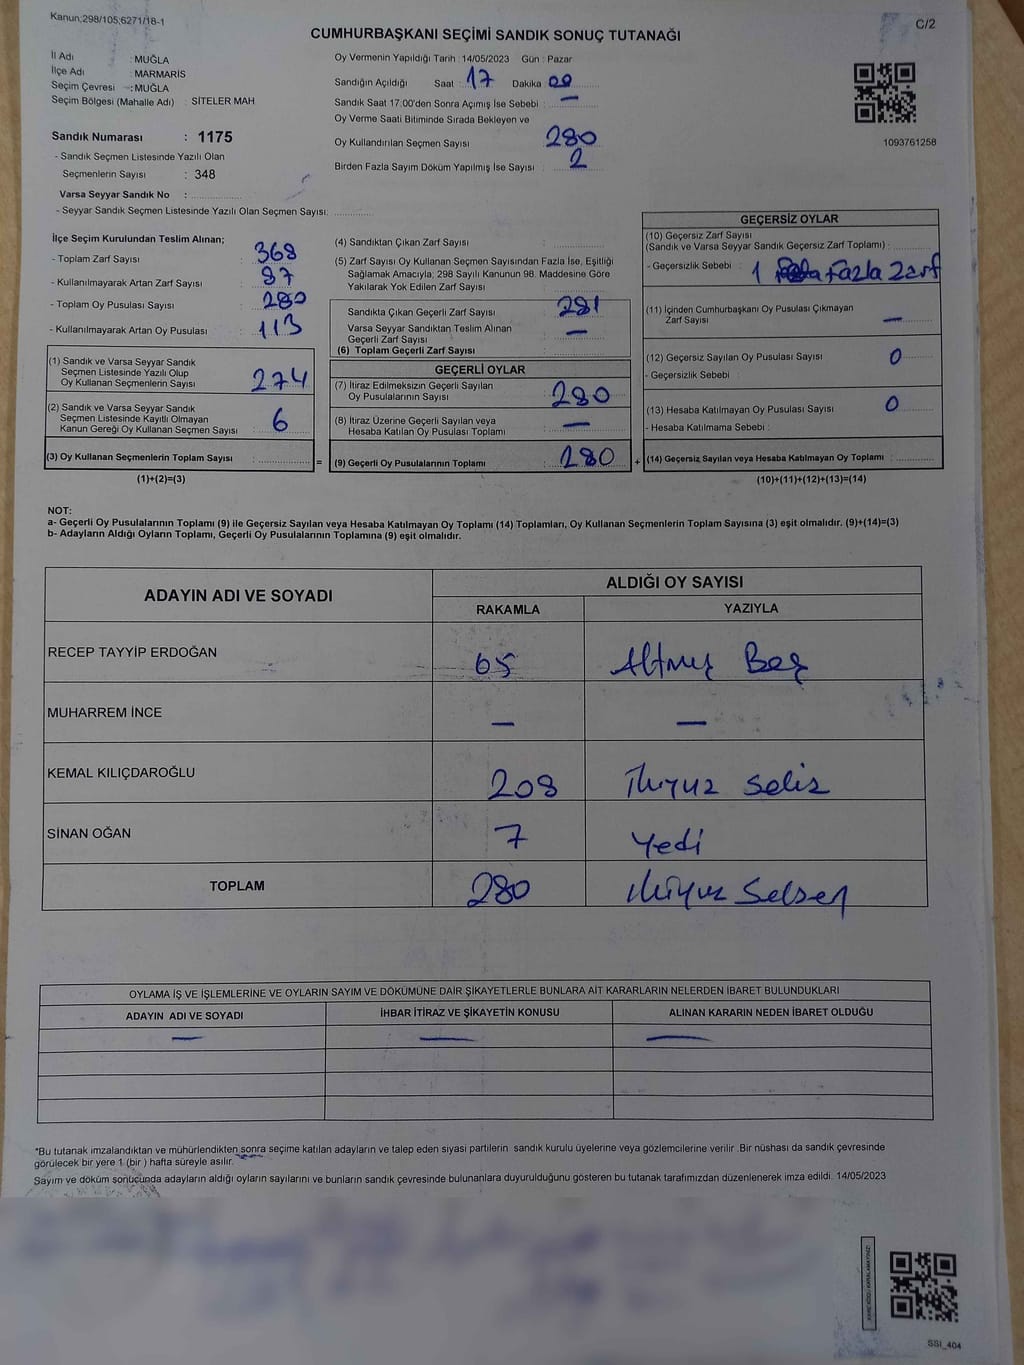 Kanun;298/105;6271/18-1
C/2
CUMHURBAŞKANI SEÇİMİ SANDIK SONUÇ TUTANAĞI
İl Adı : MUĞLA
İlçe Adı : MARMARİS
Seçim Çevresi : MUĞLA
Seçim Bölgesi (Mahalle Adı) : SİTELER MAH
Sandık Numarası : 1175
- Sandık Seçmen Listesinde Yazılı Olan
Seçmenlerin Sayısı : 348
Varsa Seyyar Sandık No :
- Seyyar Sandık Seçmen Listesinde Yazılı Olan Seçmen Sayısı:
Oy Vermenin Yapıldığı Tarih : 14/05/2023 Gün : Pazar
Sandığın Açıldığı Saat : 17 Dakika : 00
Sandık Saat 17.00'den Sonra Açımış İse Sebebi : —
Oy Verme Saati Bitiminde Sırada Bekleyen ve
Oy Kullandırılan Seçmen Sayısı : 280
Birden Fazla Sayım Döküm Yapılmış İse Sayısı : 2
1093761258
İlçe Seçim Kurulundan Teslim Alınan;
- Toplam Zarf Sayısı : 368
- Kullanılmayarak Artan Zarf Sayısı : 87
- Toplam Oy Pusulası Sayısı : 280
- Kullanılmayarak Artan Oy Pusulası : 113
(1) Sandık ve Varsa Seyyar Sandık
Seçmen Listesinde Yazılı Olup
Oy Kullanan Seçmenlerin Sayısı : 274
(2) Sandık ve Varsa Seyyar Sandık
Seçmen Listesinde Kayıtlı Olmayan
Kanun Gereği Oy Kullanan Seçmen Sayısı : 6
(3) Oy Kullanan Seçmenlerin Toplam Sayısı : =
(1)+(2)=(3)
(4) Sandıktan Çıkan Zarf Sayısı :
(5) Zarf Sayısı Oy Kullanan Seçmen Sayısından Fazla İse, Eşitliği
Sağlamak Amacıyla; 298 Sayılı Kanunun 98. Maddesine Göre
Yakılarak Yok Edilen Zarf Sayısı :
Sandıkta Çıkan Geçerli Zarf Sayısı : 281
Varsa Seyyar Sandıktan Teslim Alınan
Geçerli Zarf Sayısı : —
(6) Toplam Geçerli Zarf Sayısı :
GEÇERLİ OYLAR
(7) İtiraz Edilmeksizin Geçerli Sayılan
Oy Pusulalarının Sayısı : 280
(8) İtiraz Üzerine Geçerli Sayılan veya
Hesaba Katılan Oy Pusulası Toplamı : —
(9) Geçerli Oy Pusulalarının Toplamı : 280 +
GEÇERSİZ OYLAR
(10) Geçersiz Zarf Sayısı
(Sandık ve Varsa Seyyar Sandık Geçersiz Zarf Toplamı) :
- Geçersizlik Sebebi : 1 Fazla Zarf
(11) İçinden Cumhurbaşkanı Oy Pusulası Çıkmayan
Zarf Sayısı : —
(12) Geçersiz Sayılan Oy Pusulası Sayısı : 0
- Geçersizlik Sebebi :
(13) Hesaba Katılmayan Oy Pusulası Sayısı : 0
- Hesaba Katılmama Sebebi :
(14) Geçersiz Sayılan veya Hesaba Katılmayan Oy Toplamı :
(10)+(11)+(12)+(13)=(14)
NOT:
a- Geçerli Oy Pusulalarının Toplamı (9) ile Geçersiz Sayılan veya Hesaba Katılmayan Oy Toplamı (14) Toplamları, Oy Kullanan Seçmenlerin Toplam Sayısına (3) eşit olmalıdır. (9)+(14)=(3)
b- Adayların Aldığı Oyların Toplamı, Geçerli Oy Pusulalarının Toplamına (9) eşit olmalıdır.
ADAYIN ADI VE SOYADI
ALDIĞI OY SAYISI
RAKAMLA YAZIYLA
RECEP TAYYİP ERDOĞAN 65 Altmış Beş
MUHARREM İNCE — —
KEMAL KILIÇDAROĞLU 208 İkiyüz Sekiz
SİNAN OĞAN 7 Yedi
TOPLAM 280 ikiyüz Seksen
OYLAMA İŞ VE İŞLEMLERİNE VE OYLARIN SAYIM VE DÖKÜMÜNE DAİR ŞİKAYETLERLE BUNLARA AİT KARARLARIN NELERDEN İBARET BULUNDUKLARI
ADAYIN ADI VE SOYADI İHBAR İTİRAZ VE ŞİKAYETİN KONUSU ALINAN KARARIN NEDEN İBARET OLDUĞU
— — —
*Bu tutanak imzalandıktan ve mühürlendikten sonra seçime katılan adayların ve talep eden siyasi partilerin sandık kurulu üyelerine veya gözlemcilerine verilir .Bir nüshası da sandık çevresinde
görülecek bir yere 1 (bir ) hafta süreyle asılır.
Sayım ve döküm sonucunda adayların aldığı oyların sayılarını ve bunların sandık çevresinde bulunanlara duyurulduğunu gösteren bu tutanak tarafımızdan düzenlenerek imza edildi. 14/05/2023
SSI_404